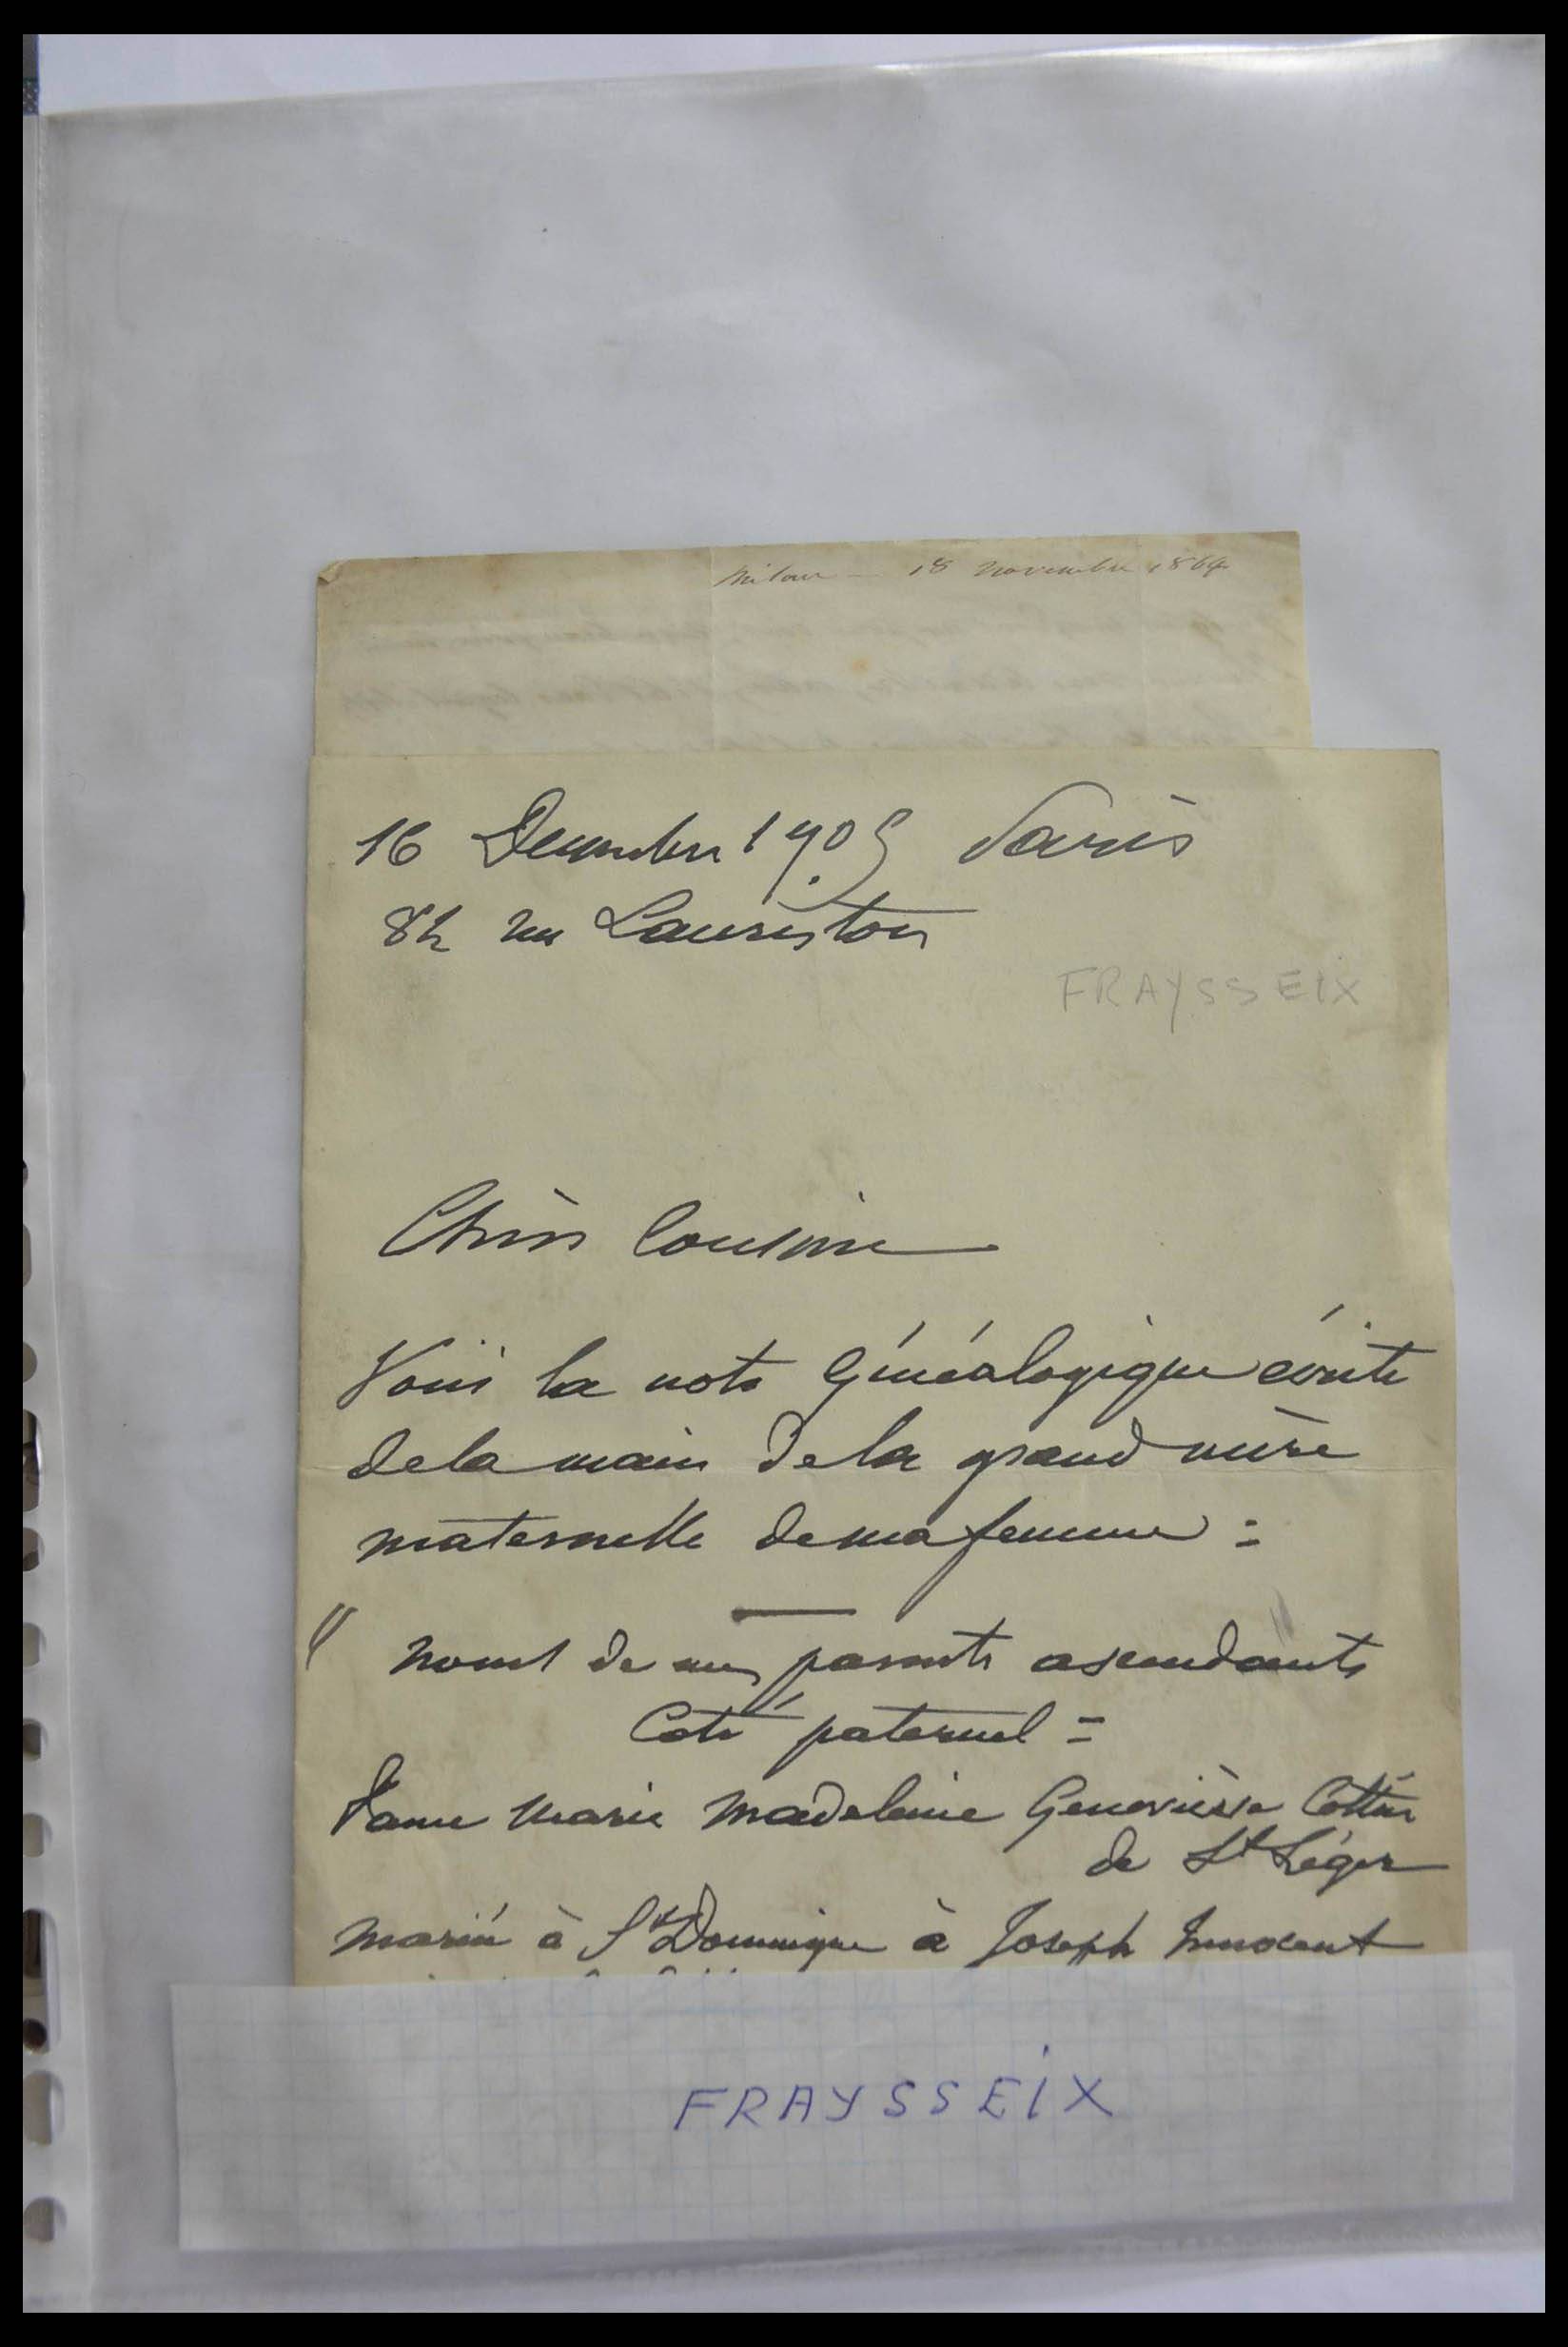 18 Novembre 1864
16 Decembre 1905 Paris
82 rue Lauriston
FRAYSSEIX
Chère Cousine
Voici la note Généalogique écrite
de la main de la grand mère
maternelle de ma femme =
" Noms de mes parents ascendants
Coté paternel =
Dame Marie Madeleine Geneviève Cottin
de St Léger
Mariée à St Domingue à Joseph Innocent
FRAYSSEIX